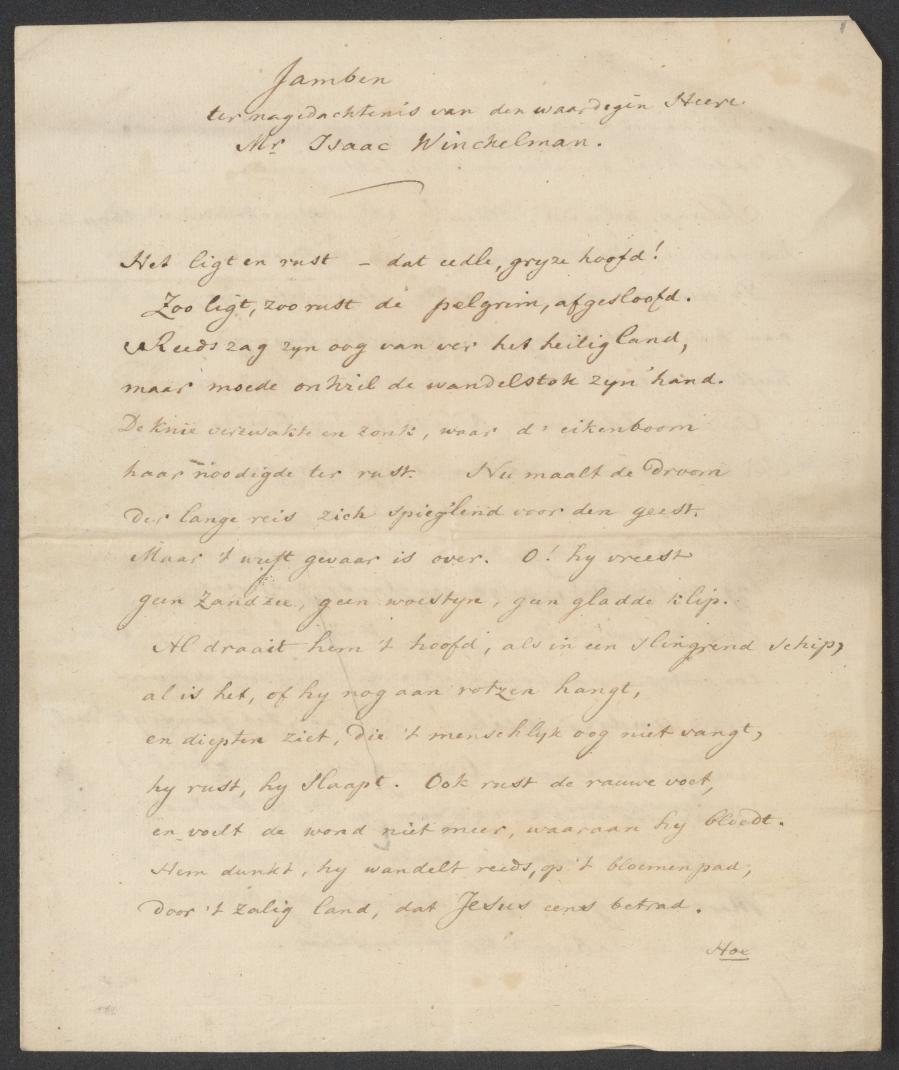 Jamben
ter nagedachtenis van den waardigen Heere
Mr Isaac Winckelman.
Het ligt en rust – dat eedle, gryze hoofd!
Zoo ligt, zoo rust de pelgrim, afgesloofd.
Reeds zag zyn oog van ver het heilig land,
maar moede ontviel de wandelstok zyn' hand.
De knie verzwakte en zonk, waar d' eikenboom
haar noodigde ter rust. Nu maalt de droom
der lange reis zich spieg'lend voor den geest.
Maar 't gevaar is over. O! hy vreest
geen zandzee, geen woestyn, geen gladde klip.
Al draait hem 't hoofd, als in een slingrend schip,
al is het, of hy nog aan rotzen hangt,
en diepten ziet, die 't menschlyk oog niet vangt,
hy rust, hy slaapt. Ook rust de rauwe voet,
en voelt de wond niet meer, waaraan hy bloedt.
Hem dunkt, hy wandelt reeds, op 't bloemenpad,
door 't zalig land, dat Jesus eens betrad.
Hoe